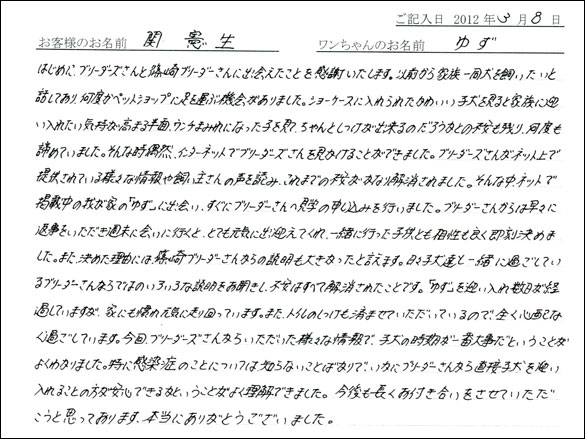 ご記入日 2012年3月8日
お客様のお名前 関 憲生 ワンちゃんのお名前 ゆず
はじめに、ブリーダーズさんと篠崎ブリーダーさんに出会えたことを感謝いたします。以前から家族一同犬を飼いたいと
話しており、何度かペットショップに足を運ぶ機会がありました。ショーケースに入れられたかわいい子犬を見ると家族に迎
い入れたい気持が高まる半面、ウンチまみれになった子を見て、ちゃんとしつけが出来るのだろうかとの不安も残り、何度も
諦めていました。そんな時偶然、インターネットでブリーダーズさんを見かけることができました。ブリーダーズさんがネット上で
提供されている様々な情報や飼い主さんの声を読み、これまでの不安がかなり解消されました。そんな中、ネットで
掲載中の我が家の「ゆず」に出会い、すぐにブリーダーさんへ見学の申し込みを行いました。ブリーダーさんからは早々に
返事をいただき週末に会いに行くと、とても元気に出迎えてくれ、一緒に行った子供とも相性も良く即刻決めま
した。また、決めた理由には篠崎ブリーダーさんからの説明も大きかったと言えます。日々子犬達と一緒に過ごしてい
るブリーダーさんならではのいろいろな説明をお聞きし、不安はすべて解消されたことです。「ゆず」を迎い入れ数日が経
過していますが、家にも慣れ元気に走り回っています。また、トイレのしつけも済ませていただいているので、全く心配な
く過ごしています。今回、ブリーダーズさんからいただいた様々な情報で、子犬の時期が一番大事だということが
よくわかりました。特に感染症のことについては知らないことばかりで、いかにブリーダーさんから直接子犬を迎い
入れることの方が安心できるかということがよく理解できました。今後も長くお付き合いをさせていただ
こうと思っております、本当にありがとうございました。